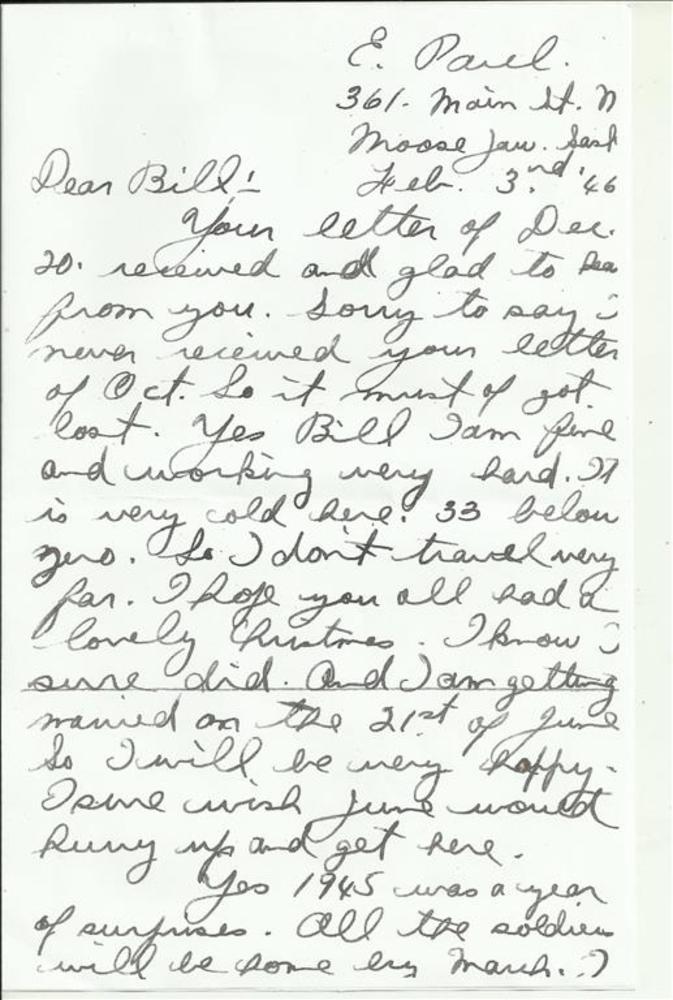 E. Pavel.
361. Main St. N
Moose Jaw. Sask
Dear Bill:- Feb. 3.nd. 46
Your letter of Dec.
20. received and glad to hea
from you. Sorry to say I
never received your letter
of Oct. So it must of got
lost. Yes Bill I am fine
and working very hard. It
is very cold here. 33 below
zero. So I don't travel very
far. I hope you all had a
lovely Christmas. I know I
sure did. And I am getting
married on the 21st of June
So I will be very happy.
I sure wish June would
hurry up and get here.
Yes 1945 was a year
of surprises. All the soldiers
will be home by March. I